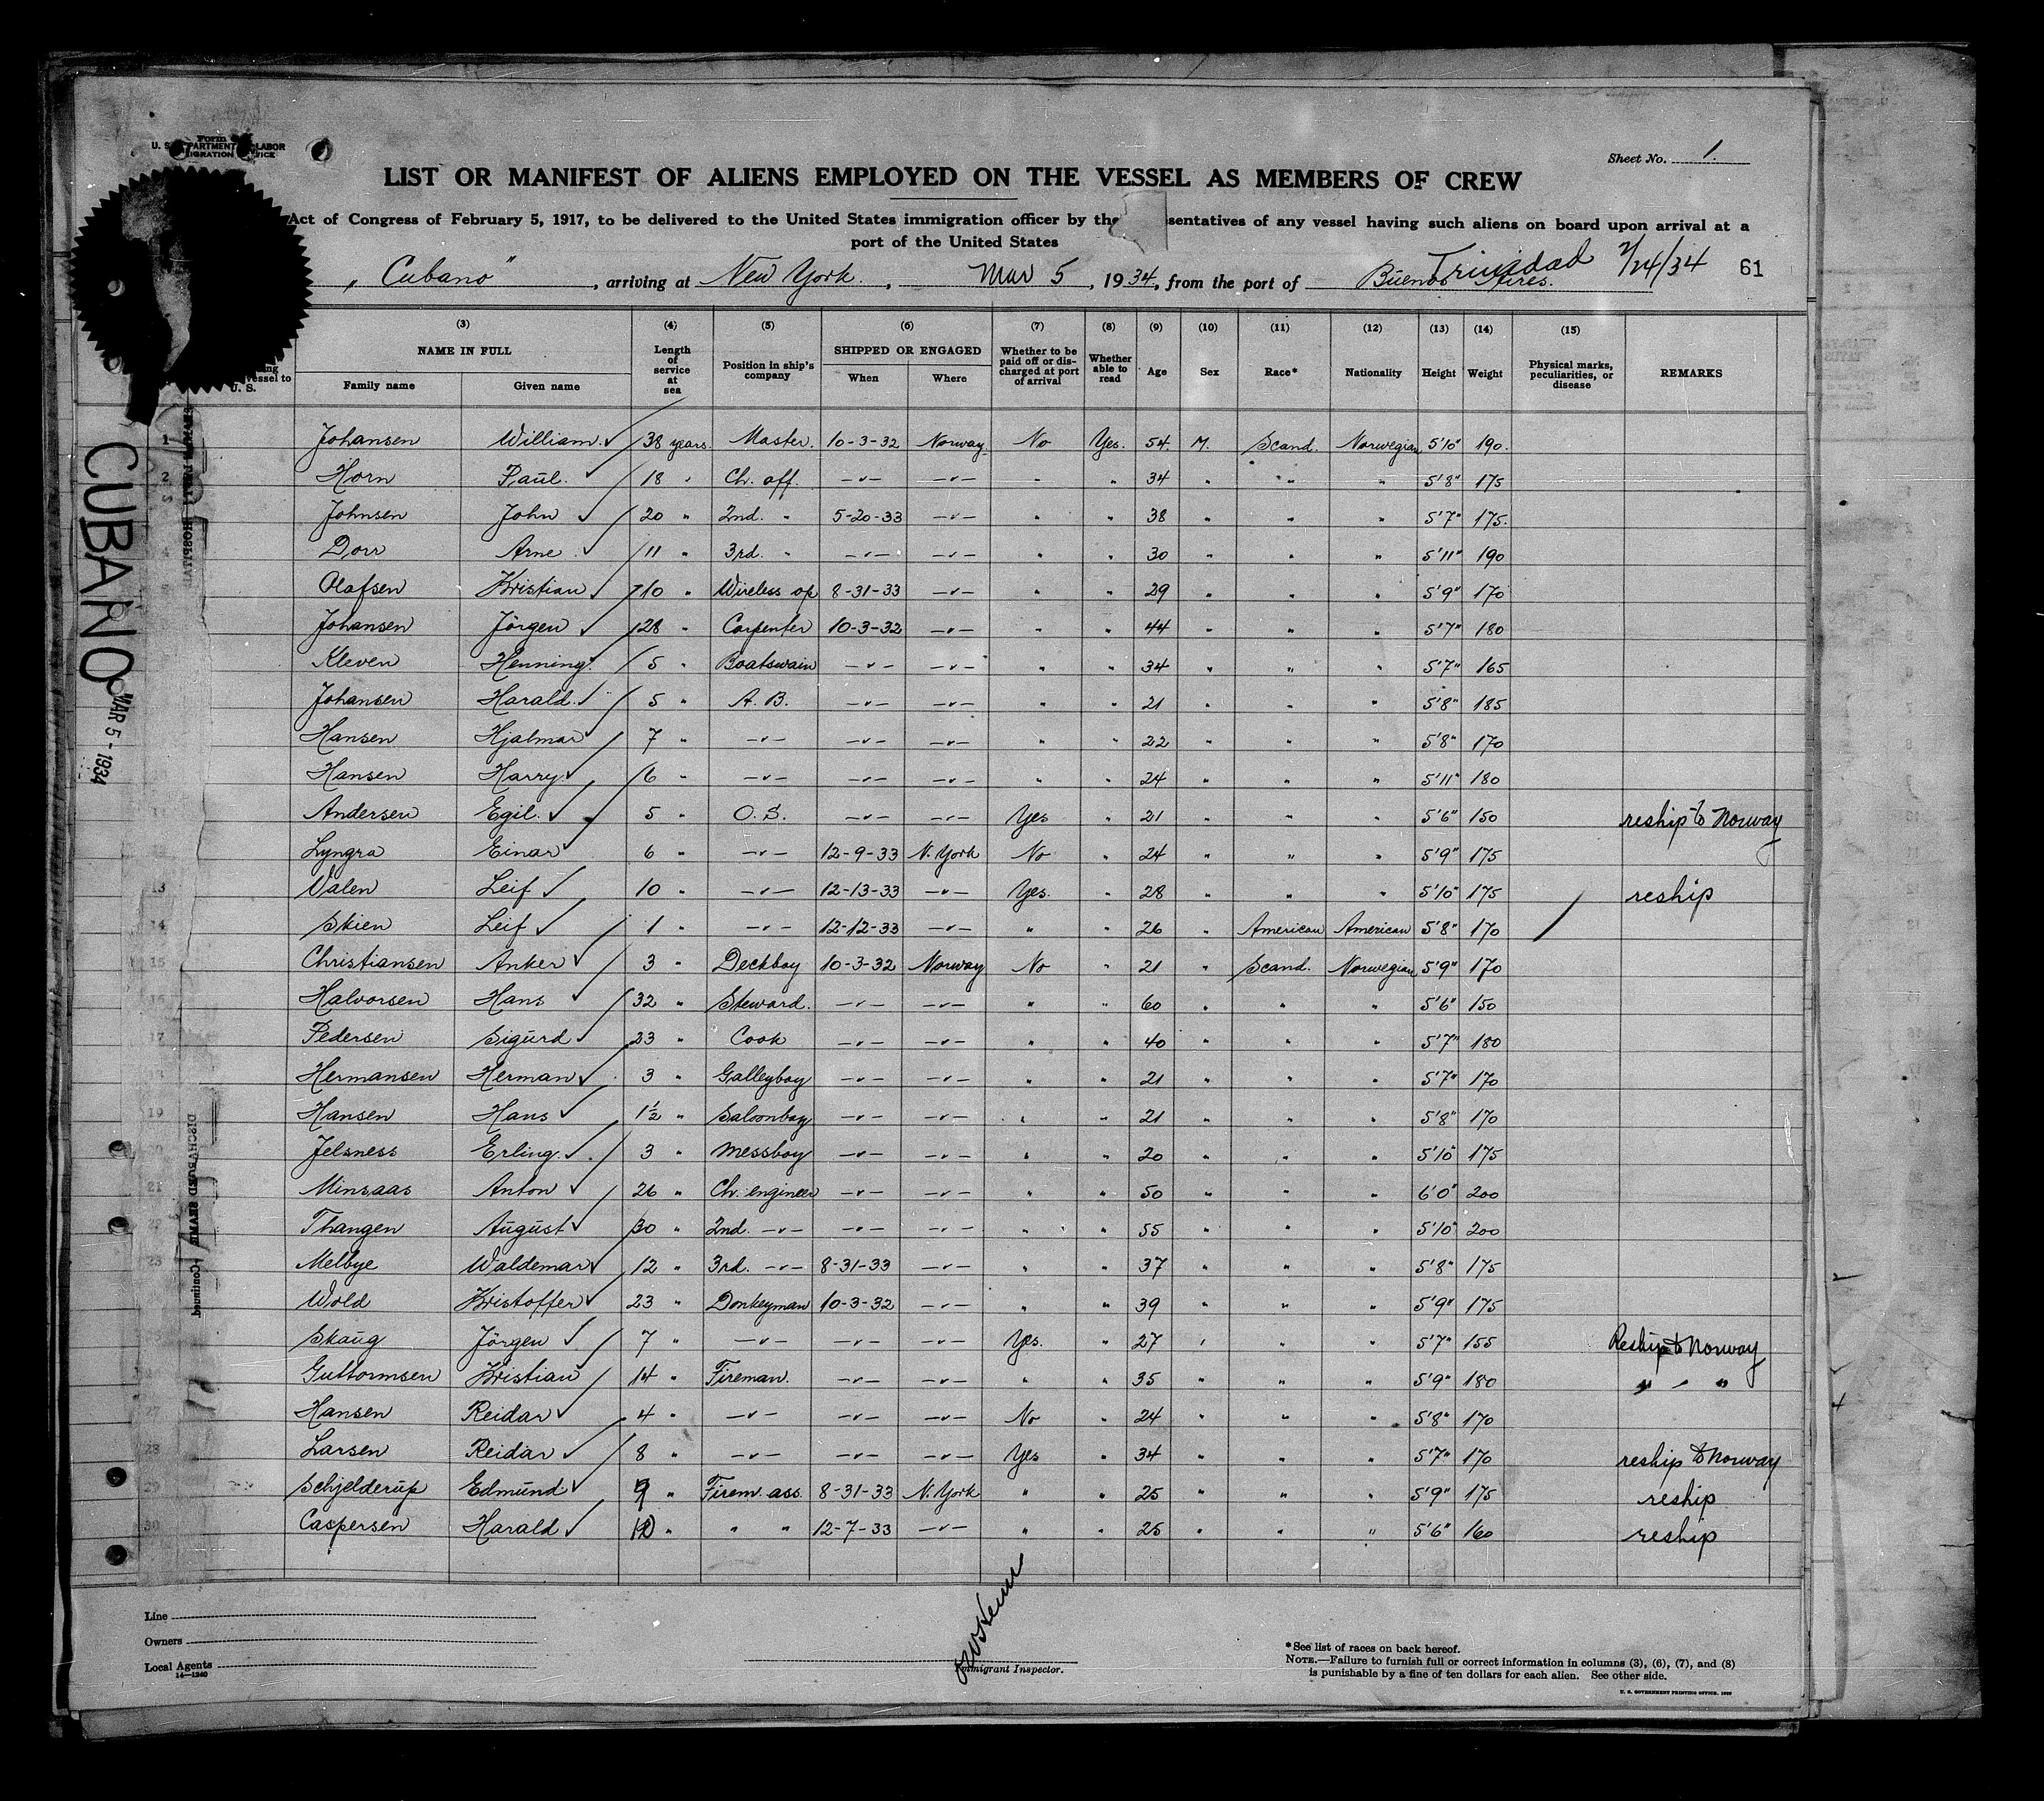 Form
U. S. DEPARTMENT LABOR
Sheet No. 1.
LIST OR MANIFEST OF ALIENS EMPLOYED ON THE VESSEL AS MEMBERS OF CREW
Act of Congress of February 5, 1917, to be delivered to the United States immigration officer by the esentatives of any vessel having such aliens on board upon arrival at a
port of the United States
„Cubano", arriving at New York., Mar 5, 1934, from the port of Buenos Aires. Trinidad 2/24/34 61
(3) (4) (5) (6) (7) (8) (9) (10) (11) (12) (13) (14) (15)
NAME IN FULL Length of service at sea Position in ship's company SHIPPED OR ENGAGED Whether to be paid off or discharged at port of arrival Whether able to read Age Sex Race* Nationality Height Weight Physical marks, peculiarities, or disease REMARKS
vessel to U. S. Family name Given name When Where
1 Johansen William. 38 years. Master. 10-3-32 Norway. No Yes. 54. M. Scand. Norwegian 5'10" 190.
2 Horn Paul. 18 " Ch. off. -"- -"- " " 34 " " " 5'8" 175
Johnsen John 20 " 2nd. " 5-20-33 -"- " " 38 " " " 5'7" 175.
4 Dorr Arne 11 " 3rd. " -"- -"- " " 30 " " " 5'11" 190
Olafsen Kristian 10 " Wireless op 8-31-33 -"- " " 29 " " " 5'9" 170
Johansen Jörgen 28 " Carpenter 10-3-32 -"- " " 44 " " " 5'7" 180
Kleven Henning. 5 " Boatswain -"- -"- " " 34 " " " 5'7" 165
Johansen Harald. 5 " A. B. -"- -"- " " 21 " " " 5'8" 185
Hansen Hjalmar 7 " -"- -"- -"- " " 22 " " " 5'8" 170
Hansen Harry. 6 " -"- -"- -"- " " 24 " " " 5'11" 180
Andersen Egil. 5 " O. S. -"- -"- Yes " 21 " " " 5'6" 150 reship to Norway
Lyngra Einar 6 " -"- 12-9-33 N. York No " 24 " " " 5'9" 175
13 Valen Leif 10 " -"- 12-13-33 -"- Yes. " 28 " " " 5'10" 175 reship
14 Skien Leif 1 " -"- 12-12-33 " " 26 " American American 5'8" 170
15 Christiansen Anker 3 " Deckboy 10-3-32 Norway No " 21 " Scand. Norwegian 5'9" 170
16 Halvorsen Hans 32 " Steward. -"- -"- " " 60 " " " 5'6" 150
17 Pedersen Sigurd 23 " Cook -"- -"- " " 40 " " " 5'7" 180
Hermansen Herman 3 " Galleyboy -"- -"- " " 21 " " " 5'7" 170
19 Hansen Hans 1½ " Saloonboy -"- -"- " " 21 " " " 5'8" 170
20 Jelsness Erling. 3 " Messboy -"- -"- " " 20 " " " 5'10" 175
21 Minsaas Anton 26 " Ch. engineer -"- -"- " " 50 " " " 6'0" 200
22 Thangen August 30 " 2nd. -"- -"- -"- " " 55 " " " 5'10" 200
23 Melbye Waldemar 12 " 3rd. -"- 8-31-33 -"- " " 37 " " " 5'8" 175
Wold Kristoffer 23 " Donkeyman 10-3-32 -"- " " 39 " " " 5'9" 175
Skaug Jörgen 7 " -"- -"- -"- Yes. " 27 " " " 5'7" 155 Reship to Norway
Guttormsen Kristian 14 " Fireman. -"- -"- " " 35 " " " 5'9" 180 " - "
27 Hansen Reidar 4 " -"- -"- -"- No " 24 " " " 5'8" 170
28 Larsen Reidar 8 " -"- -"- -"- Yes " 34 " " " 5'7" 170 reship to Norway
29 Schjelderup Edmund 9 " Firem. ass. 8-31-33 N. York " " 25 " " " 5'9" 175 reship
30 Caspersen Harald " " " 12-7-33 -"- " " 25 " " " 5'6" 160 reship
CUBANO
MAR 5 - 1934
HOSPITAL
DISCHARGED SEAMEN—Continued
Line
Owners
Local Agents
14—1240
Immigrant Inspector.
*See list of races on back hereof.
NOTE.—Failure to furnish full or correct information in columns (3), (6), (7), and (8)
is punishable by a fine of ten dollars for each alien. See other side.
U. S. GOVERNMENT PRINTING OFFICE.